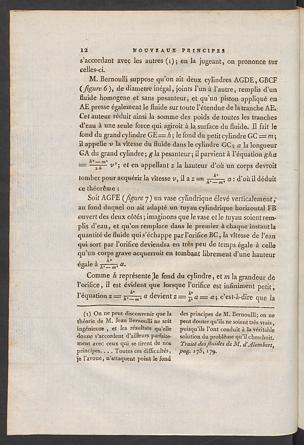 12 NOUVEAUX PRINCIPES
s'accordant avec les autres (1); en la jugeant, on prononce sur
celles-ci.
M. Bernoulli suppose qu'on ait deux cylindres AGDE, GBCF
(figure 6), de diametre inégal, joints l'un à l'autre, remplis d'un
fluide homogene et sans pesanteur, et qu'un piston appliqué en
AE presse également le fluide sur toute l'étendue de la tranche AE.
Cet auteur réduit ainsi la somme des poids de toutes les tranches
d'eau à une seule force qui agiroit à la surface du fluide. Il fait le
fond du grand cylindre GE = h; le fond du petit cylindre GC = m;
il appelle v la vîtesse du fluide dans le cylindre GC; a la longueur
GA du grand cylindre; g la pesanteur; il parvient à l'équation gha
= v²; et en appelant z la hauteur d'où un corps devroit
tomber pour acquérir la vîtesse v, il a z = a: d'où il déduit
ce théorême:
Soit AGFE (figure 7) un vase cylindrique élevé verticalement,
au fond duquel on ait adapté un tuyau cylindrique horizontal FB
ouvert des deux côtés; imaginons que le vase et le tuyau soient rem-
plis d'eau, et qu'on remplace dans le premier à chaque instant la
quantité de fluide qui s'échappe par l'orifice BC, la vîtesse de l'eau
qui sort par l'orifice deviendra en très peu de temps égale à celle
qu'un corps grave acquerroit en tombant librement d'une hauteur
égale à a.
Comme h représente le fond du cylindre, et m la grandeur de
l'orifice, il est évident que lorsque l'orifice est infiniment petit,
l'équation z = a devient z = a = a; c'est-à-dire que la
(1) On ne peut disconvenir que la
théorie de M. Jean Bernoulli ne soit
ingénieuse, et les résultats qu'elle
donne s'accordent d'ailleurs parfaite-
ment avec ceux qui se tirent de nos
principes.... Toutes ces difficultés,
je l'avoue, n'attaquent point le fond
des principes de M. Bernoulli; on ne
peut douter qu'ils ne soient très vrais,
puisqu'ils l'ont conduit à la véritable
solution du problême qu'il cherchoit.
Traité des fluides de M. d'Alembert,
pag. 178, 179.